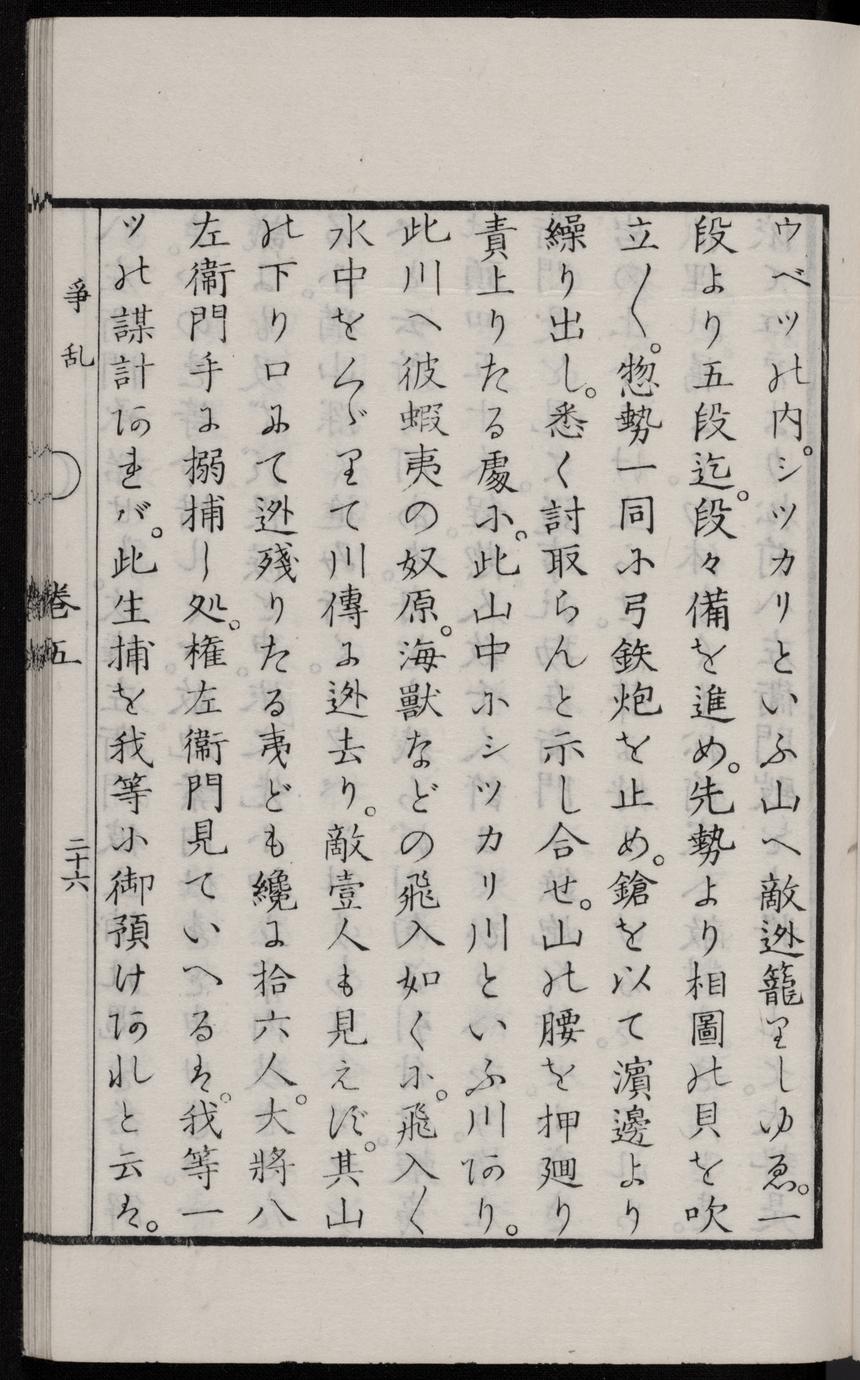 ウベツの内。シツカリといふ山へ敵迯籠りしゆゑ。一
段より五段迄。段々備を進め。先勢より相圖の貝を吹
立〳〵。惣勢一同に弓鉄炮を止め。鎗を以て濱邊より
繰り出し。悉く討取らんと示し合せ。山の腰を押廻り
責上りたる處に。此山中にシツカリ川といふ川あり。
此川へ彼蝦夷の奴原。海獣などの飛入如くに。飛入〳〵
水中をくゞりて川傳に迯去り。敵壹人も見えず。其山
の下り口にて迯殘りたる夷ども纔に拾六人。大將八
左衞門手に搦捕し処。権左衞門見ていへるは。我等一
ツの謀計あれば。此生捕を我等に御預けあれと云は。
爭乱
巻五
二十六